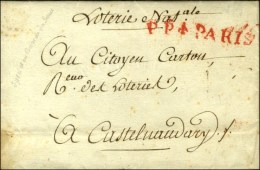 Loterie Nat.ale
P.P.4.PARIS
Au Citoyen Carton,
R.eur des Loteries,
à Castelnaudary ./.